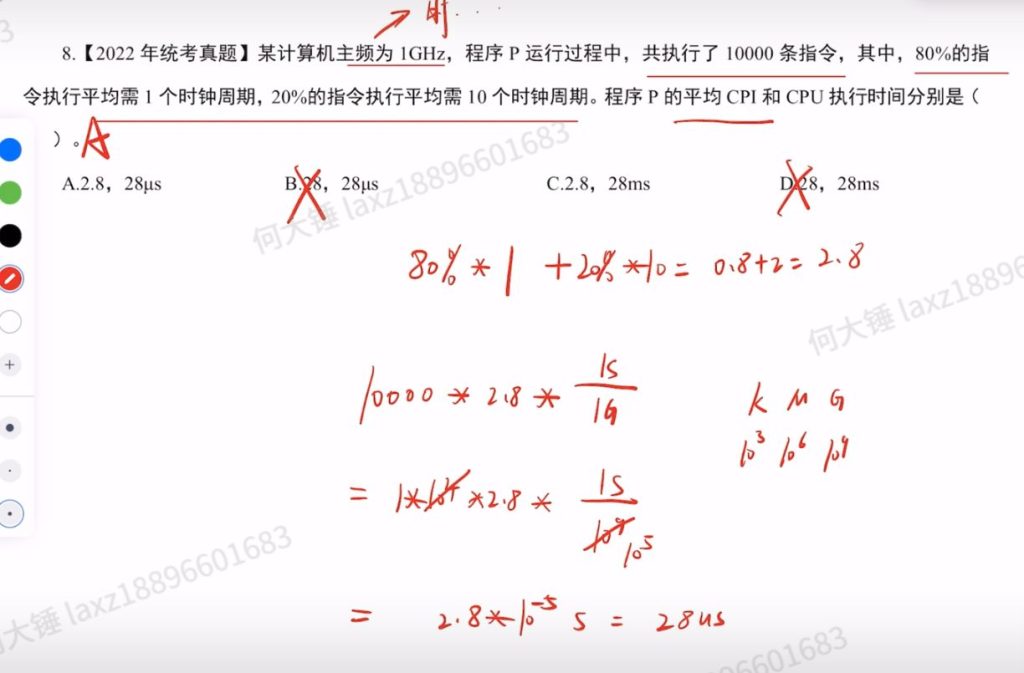 时...
8.【2022 年统考真题】某计算机主频为 1GHz，程序 P 运行过程中，共执行了 10000 条指令，其中，80%的指
令执行平均需 1 个时钟周期，20%的指令执行平均需 10 个时钟周期。程序 P 的平均 CPI 和 CPU 执行时间分别是（
）。A
A.2.8，28μs B.28，28μs C.2.8，28ms D.28，28ms
何大锤 laxz18896601683
80% * 1 + 20% * 10 = 0.8+2 = 2.8
何大锤 laxz18896
10000 * 2.8 * 1S/1G
K M G
10^3 10^6 10^9
= 1*10^4 *2.8 * 1S/10^9 10^5
= 2.8*10^-5 S = 28us
何大锤 laxz18896601683
96601683